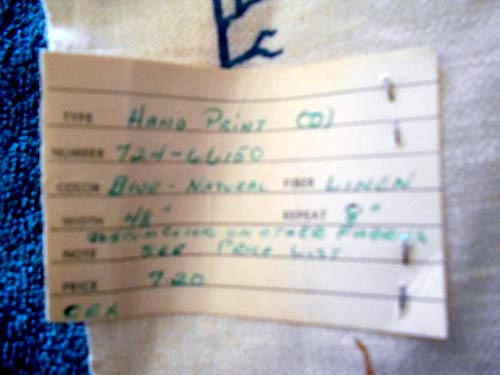 TYPE HAND PRINT (D)
NUMBER 724-66150
COLOR BLUE - NATURAL FIBER LINEN
WIDTH 48" REPEAT 8"
ON OTHER FABRICS
NOTE SEE PRICE LIST
PRICE 7.20